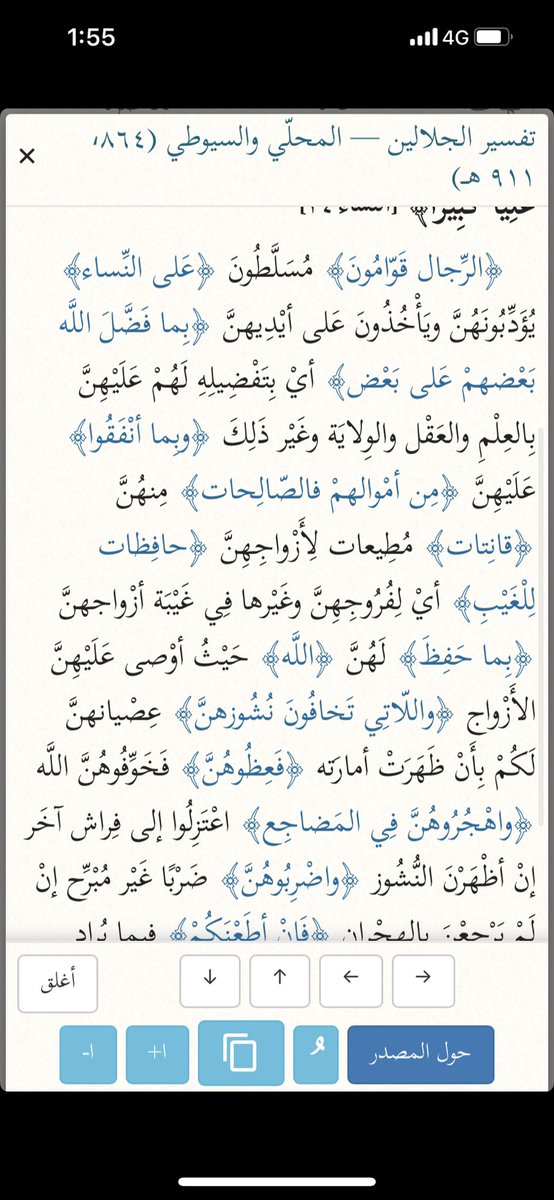 1:55
4G
تفسير الجلالين — المحلّي والسيوطي (٨٦٤،
٩١١ هـ)
﴿الرِّجال قَوّامُونَ﴾ مُسَلَّطُونَ ﴿عَلى النِّساء﴾
يُؤَدِّبُونَهُنَّ ويَأْخُذُونَ عَلى أيْدِيهنَّ ﴿بِما فَضَّلَ اللَّه
بَعْضهمْ عَلى بَعْض﴾ أيْ بِتَفْضِيلِهِ لَهُمْ عَلَيْهِنَّ
بِالعِلْمِ والعَقْل والوِلايَة وغَيْر ذَلِكَ ﴿وبِما أنْفَقُوا﴾
عَلَيْهِنَّ ﴿مِن أمْوالهمْ فالصّالِحات﴾ مِنهُنَّ
﴿قانِتات﴾ مُطِيعات لِأَزْواجِهِنَّ ﴿حافِظات
لِلْغَيْبِ﴾ أيْ لِفُرُوجِهِنَّ وغَيْرها فِي غَيْبَة أزْواجهنَّ
﴿بِما حَفِظَ﴾ لَهُنَّ ﴿اللَّه﴾ حَيْثُ أوْصى عَلَيْهِنَّ
الأَزْواج ﴿واللّاتِي تَخافُونَ نُشُوزهنَّ﴾ عِصْيانهنَّ
لَكُمْ بِأَنْ ظَهَرَتْ أمارَته ﴿فَعِظُوهُنَّ﴾ فَخَوِّفُوهُنَّ اللَّه
﴿واهْجُرُوهُنَّ فِي المَضاجِع﴾ اعْتَزِلُوا إلى فِراش آخَر
إنْ أظْهَرْنَ النُّشُوز ﴿واضْرِبُوهُنَّ﴾ ضَرْبًا غَيْر مُبَرِّح إنْ
لَمْ يَرْجِعْنَ بِالهِجْرانِ ﴿فَإنْ أطَعْنَكُمْ﴾ فِيما يُراد
أغلق
حول المصدر
+ا
-ا